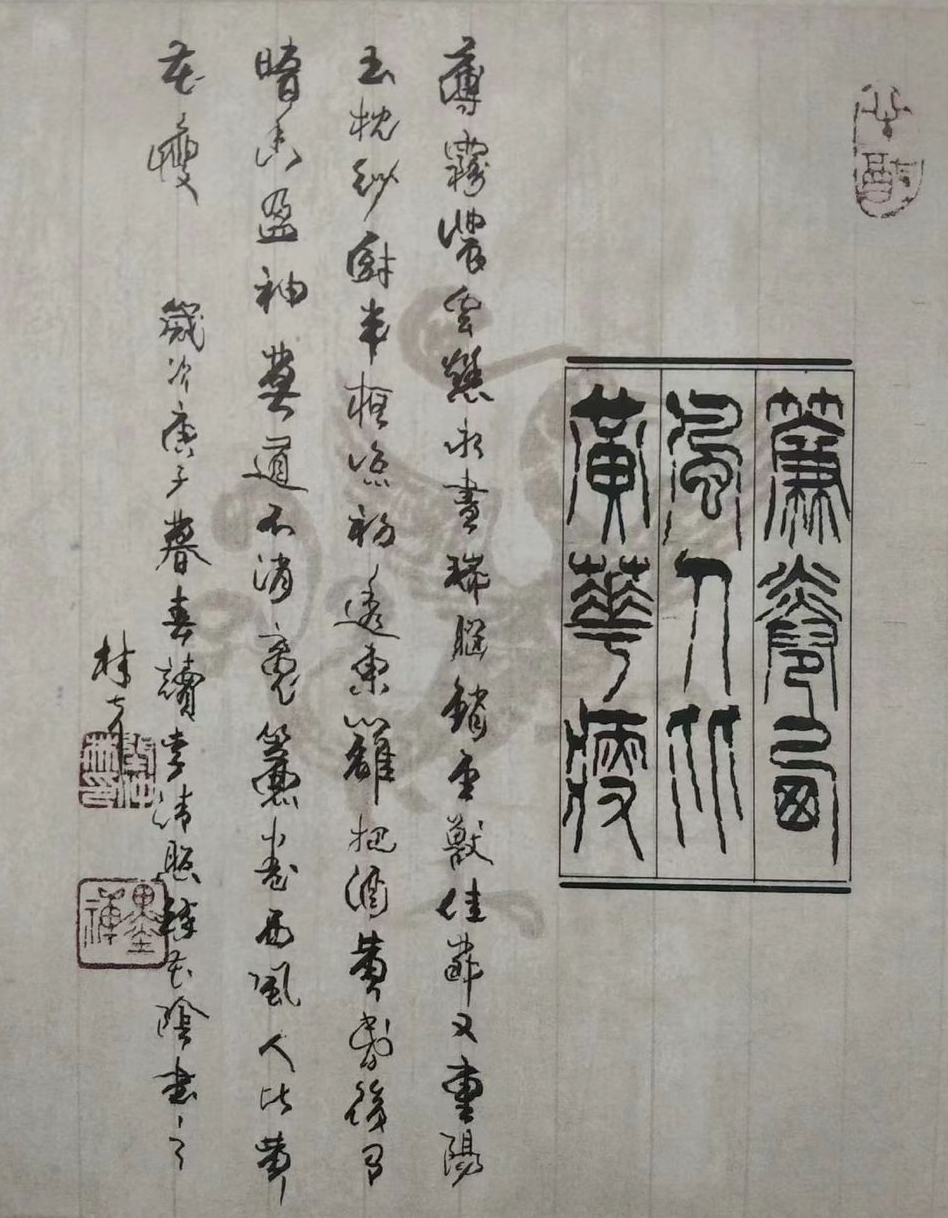 簾卷西
風人比
黃華瘦
薄霧濃雲愁永晝瑞腦銷金獸佳節又重陽
玉枕紗廚半涼初透東籬把酒黃昏後有
暗香盈袖莫道不消魂簾卷西風人比黃
花瘦 歲次庚子暮春讀李清照醉花陰書之
林